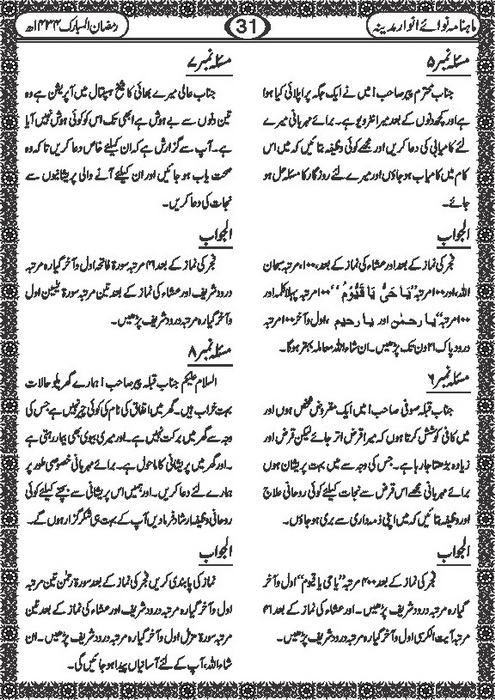 ماہنامہ نوائے انوار مدینہ
31
رمضان المبارک ۱۴۳۴ھ
مسئلہ نمبر ۵
جناب محترم پیر صاحب! میں نے ایک جگہ پر اپلائی کیا ہوا
ہے اور کچھ دنوں کے بعد میرا انٹرویو ہے۔ برائے مہربانی میرے
لئے کامیابی کی دعا کریں اور مجھے کوئی وظیفہ بتائیں کہ میں اس
کام میں کامیاب ہو جاؤں اور میرے لئے روزگار کا مسئلہ حل ہو
جائے۔
الجواب
فجر کی نماز کے بعد اور عشاء کی نماز کے بعد، ۱۰۰ مرتبہ سبحان
اللہ، اور ۱۰۰ مرتبہ ”یَا حَیُّ یَا قَیُّوْمُ“، ۱۰۰ مرتبہ پہلا کلمہ اور
۱۰۰ مرتبہ ”یا رحمٰن اور یا رحیم“، اول و آخر ۱۰۰ مرتبہ
درود پاک ۲۱ دن تک پڑھیں۔ ان شاء اللہ معاملہ بہتر ہوگا۔
مسئلہ نمبر ۶
جناب قبلہ صوفی صاحب! میں ایک مقروض شخص ہوں اور
میں کافی کوشش کرتا ہوں کہ میرا قرض اتر جائے لیکن قرض اور
زیادہ بڑھتا جا رہا ہے۔ جس کی وجہ سے میں بہت پریشان ہوں
برائے مہربانی مجھے اس قرض سے نجات کیلئے کوئی روحانی علاج
اور وظیفہ بتائیں کہ میں اپنی ذمہ داری سے بری ہو جاؤں۔
الجواب
فجر کی نماز کے بعد ۴۰۰ مرتبہ ”یا حی یا قیوم“ اول و آخر
گیارہ مرتبہ درود شریف پڑھیں۔ اور عشاء کی نماز کے بعد ۴۱
مرتبہ آیت الکرسی اول و آخر گیارہ مرتبہ درود شریف پڑھیں۔
مسئلہ نمبر ۷
جناب عالی میرے بھائی کا شیخ ہسپتال میں آپریشن ہے وہ
تین دنوں سے بے ہوش ہے ابھی تک اس کو کوئی ہوش نہیں آیا
ہے۔ آپ سے گزارش ہے کہ ان کیلئے خاص دعا کریں تاکہ وہ
صحت یاب ہو جائیں اور ان کیلئے آنے والی پریشانیوں سے
نجات کی دعا کریں۔
الجواب
فجر کی نماز کے بعد ۴۱ مرتبہ سورۃ فاتحہ اول و آخر گیارہ مرتبہ
درود شریف اور عشاء کی نماز کے بعد تین مرتبہ سورۃ یٰسین اول
و آخر گیارہ مرتبہ درود شریف پڑھیں۔
مسئلہ نمبر ۸
السلام علیکم جناب قبلہ پیر صاحب! ہمارے گھریلو حالات
بہت خراب ہیں۔ گھر میں اتفاق کی نام کی کوئی چیز نہیں ہے جس کی
وجہ سے گھر میں برکت نہیں ہے۔ اور میری بیوی بھی بیمار رہتی ہے
۔ اور گھر میں پریشانی کا ماحول ہے۔ برائے مہربانی خصوصی طور پر
ہمارے لئے دعا کریں۔ اور ہمیں اس پریشانی سے بچنے کیلئے کوئی
روحانی وظیفہ ارشاد فرما دیں آپ کے بہت ہی شکر گزار ہوں گے۔
الجواب
نماز کی پابندی کریں فجر کی نماز کے بعد سورۃ رحمٰن تین مرتبہ
اول و آخر گیارہ مرتبہ درود شریف اور عشاء کی نماز کے بعد تین
مرتبہ سورۃ مزمل اول و آخر گیارہ مرتبہ درود شریف پڑھیں۔ ان
شاء اللہ، آپ کے لئے آسانیاں پیدا ہو جائیں گی۔